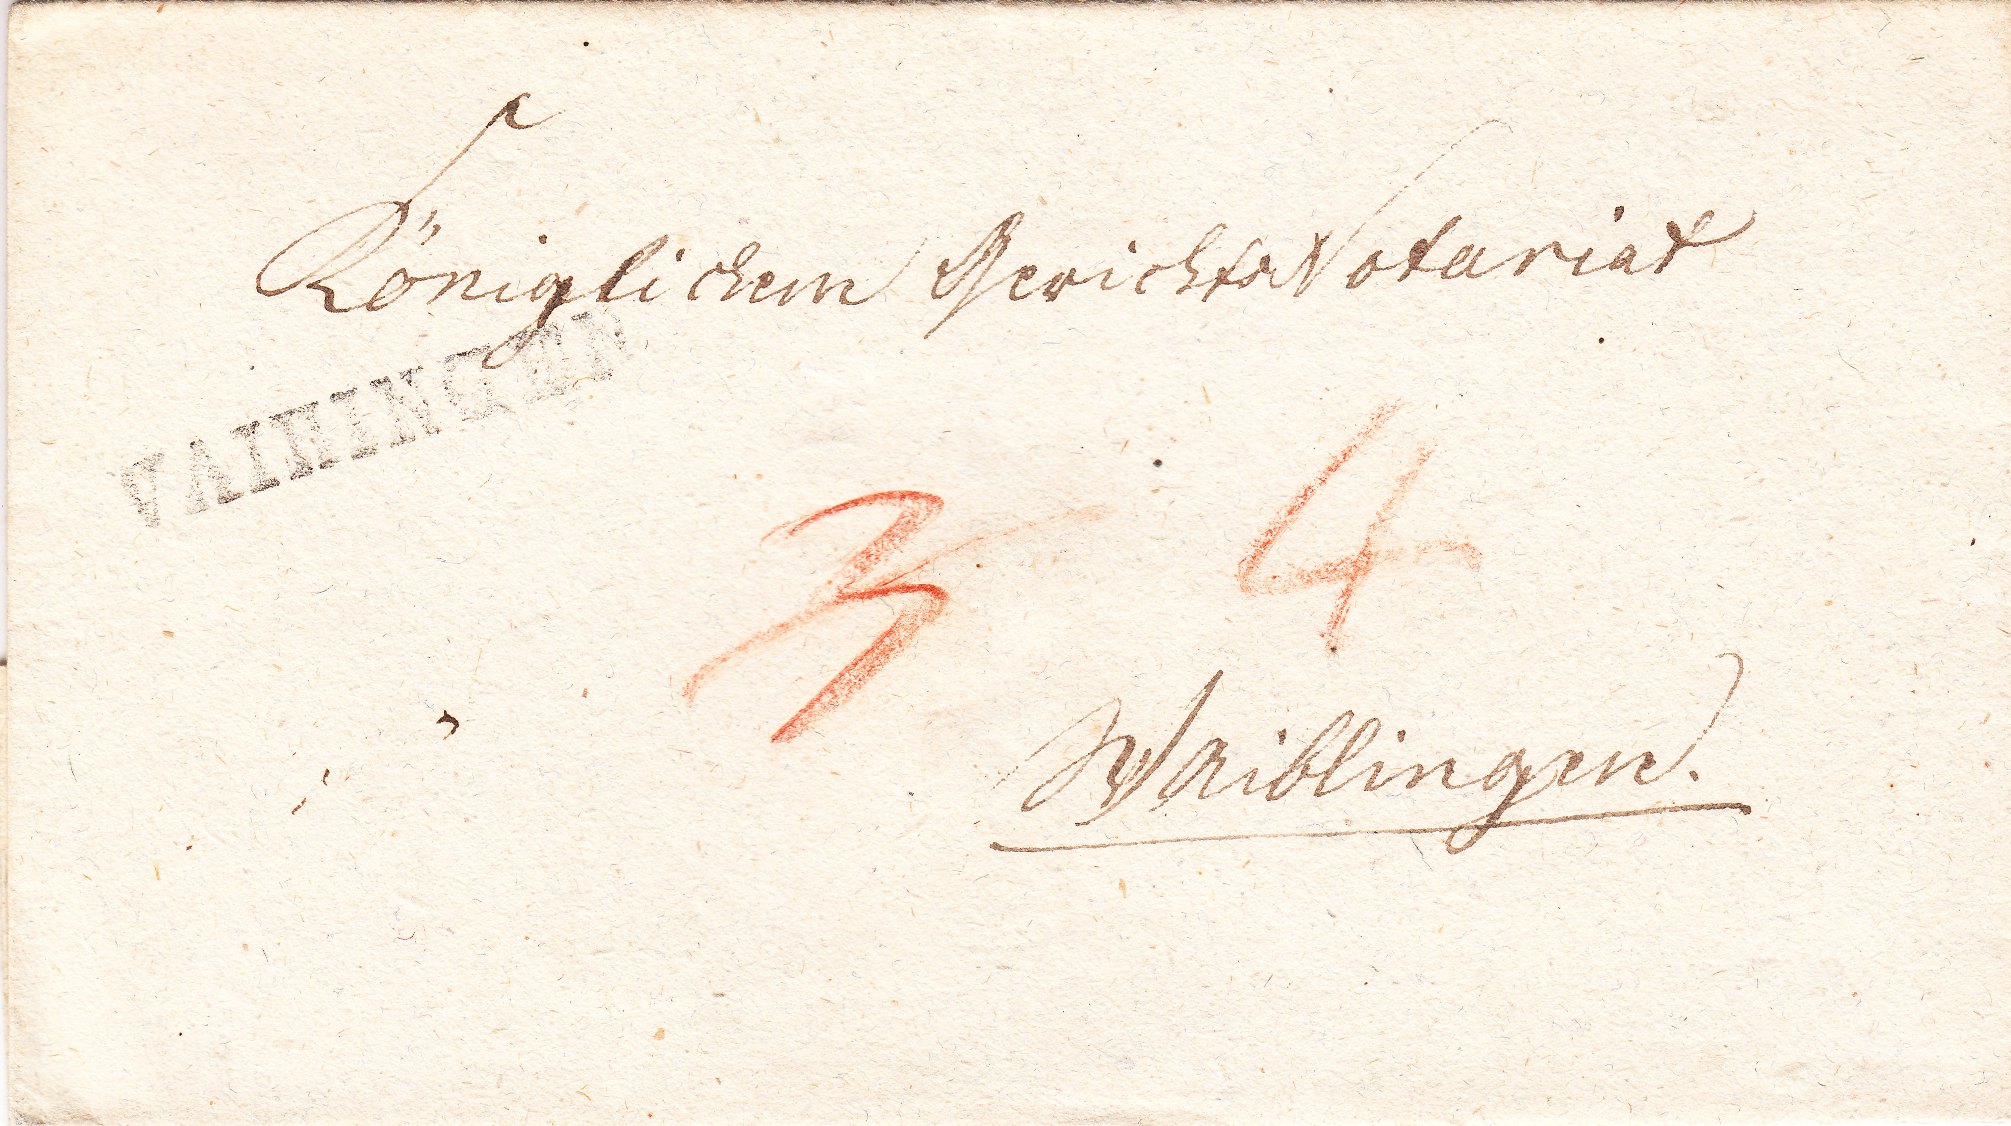 Königlichem Gerichts Notariat
VAIHINGEN
3 4
Waiblingen.